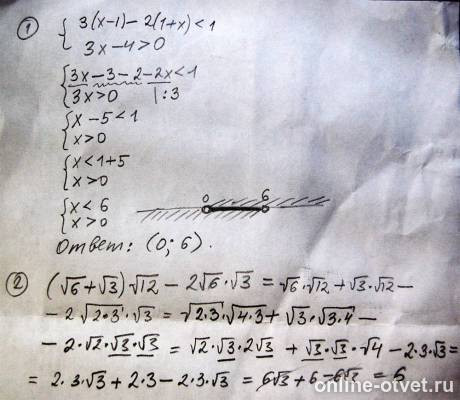 ① { 3(x-1) - 2(1+x) < 1
3x - 4 > 0
{ 3x - 3 - 2 - 2x < 1
3x > 0 | :3
{ x - 5 < 1
x > 0
{ x < 1+5
x > 0
{ x < 6
x > 0
0 6
Ответ: (0; 6).
② (√6 + √3)√12 - 2√6·√3 = √6·√12 + √3·√12 -
- 2√2·3·√3 = √2·3·√4·3 + √3·√3·4 -
- 2·√2·√3·√3 = √2·√3·2√3 + √3·√3·√4 - 2·3·√3 =
= 2·3·√3 + 2·3 - 2·3·√3 = 6√3 + 6 - 6√3 = 6
online-otvet.ru